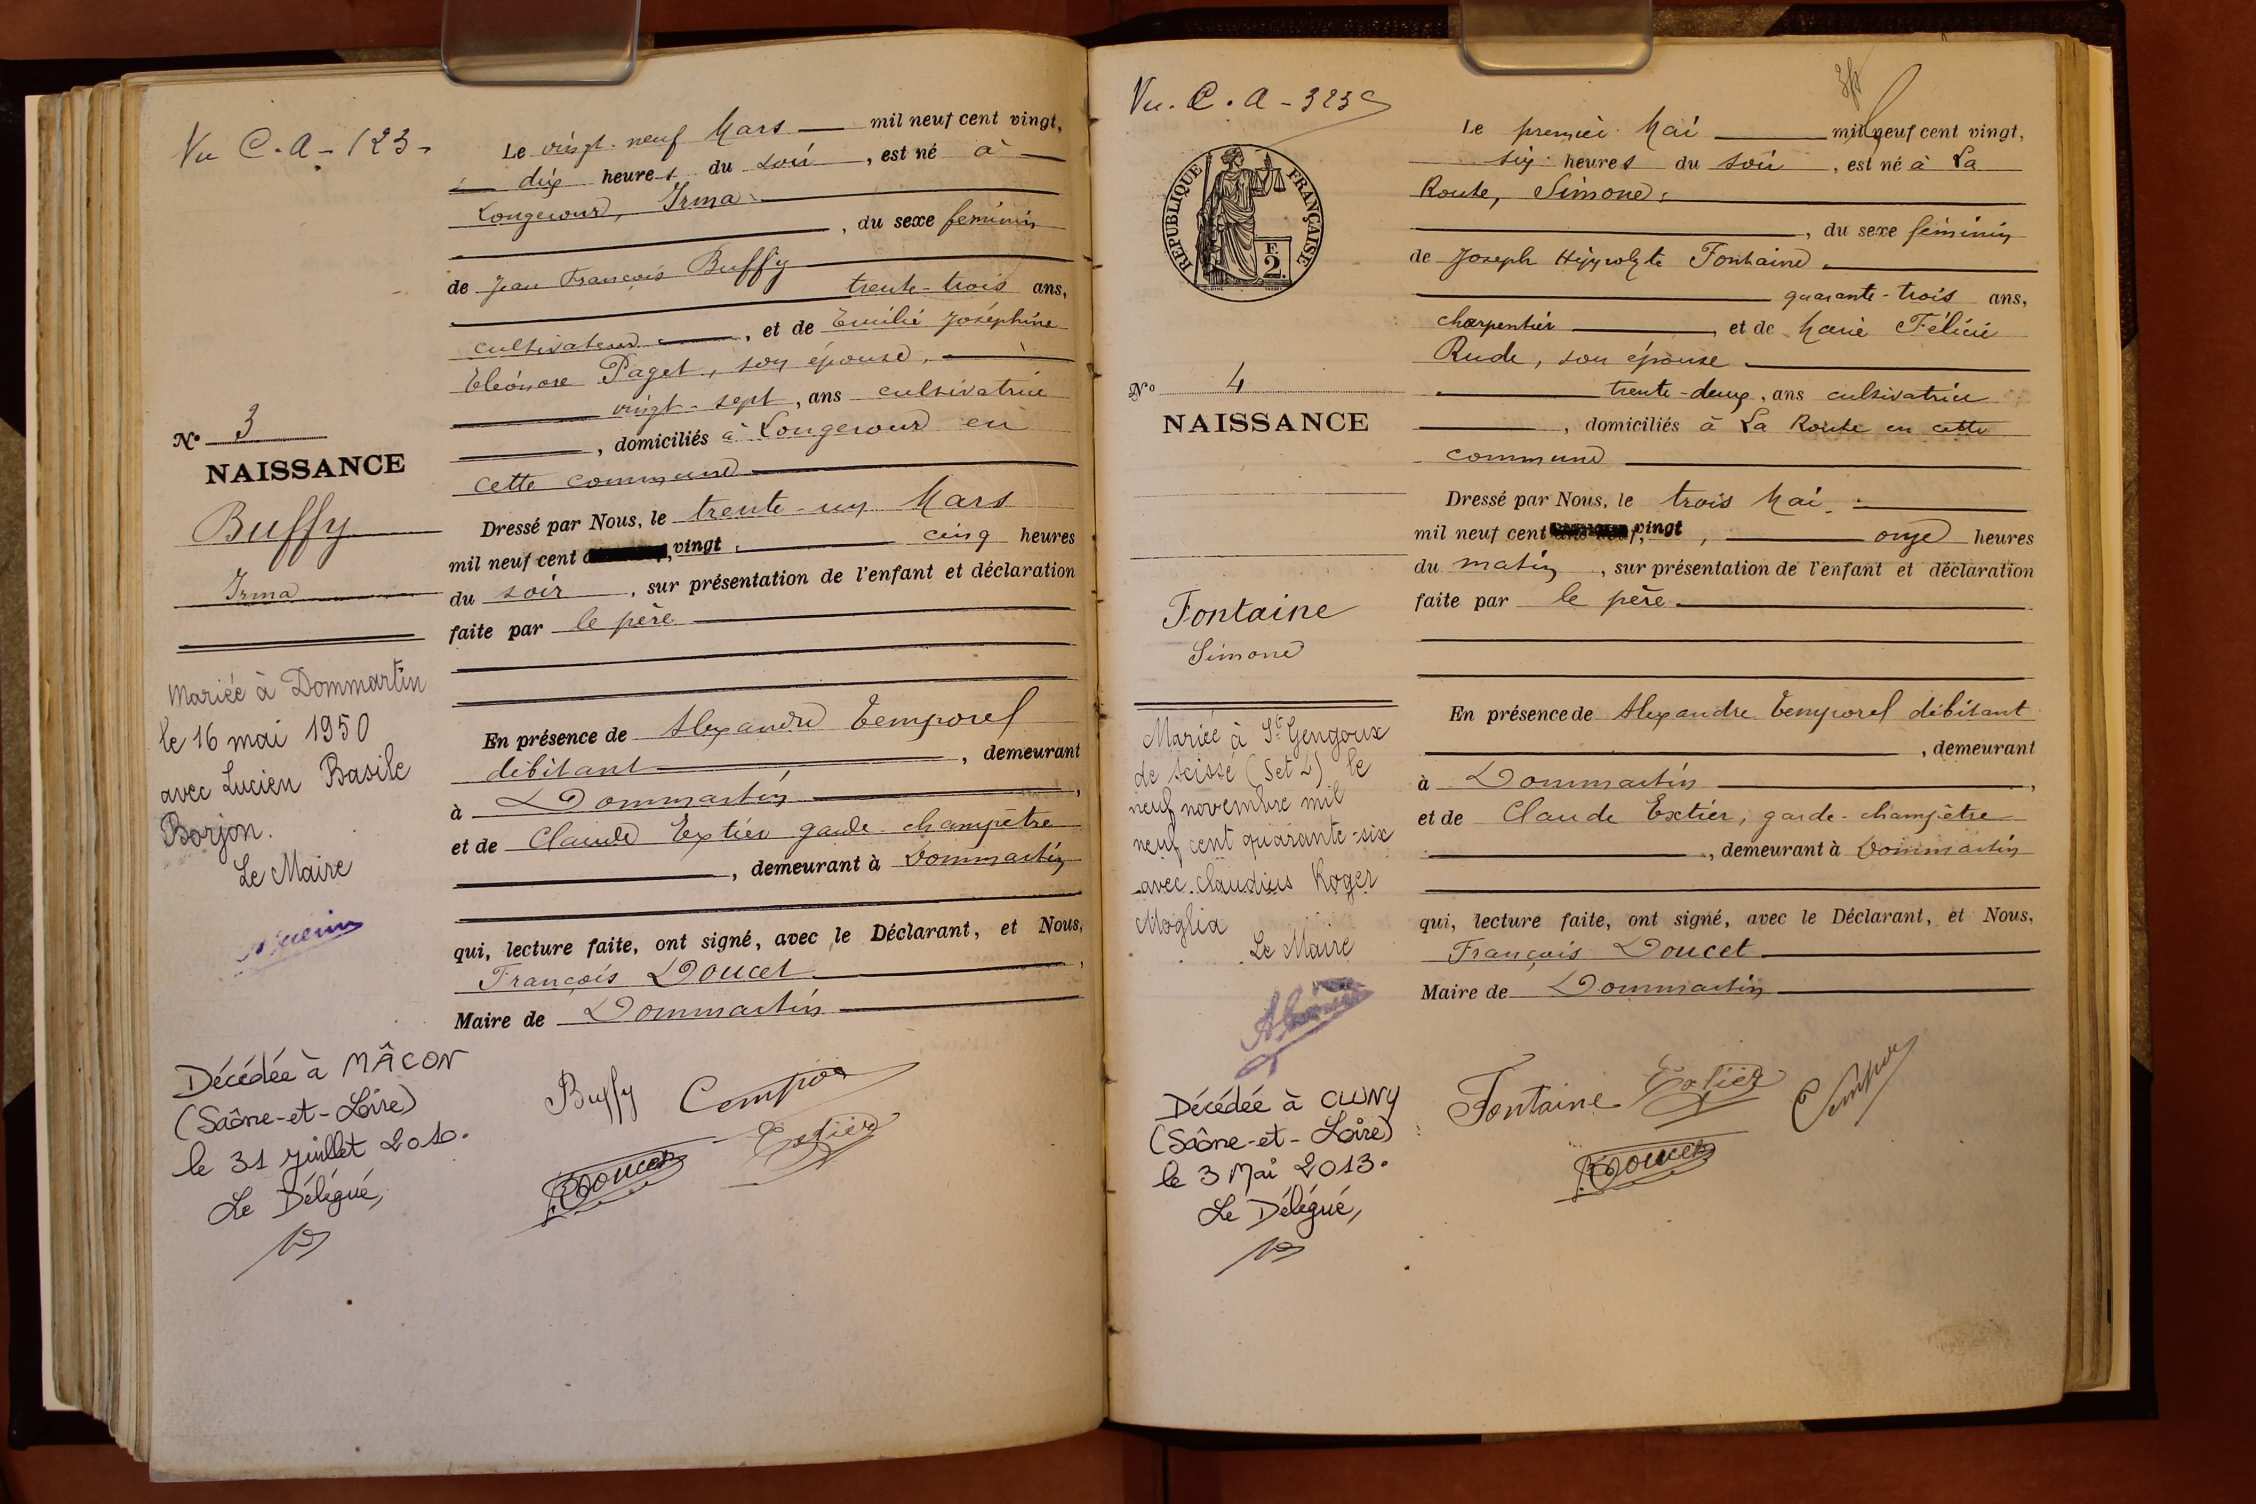 Vu C.A - 123 -
Le vingt-neuf Mars mil neuf cent vingt,
dix heures du soir, est né à
Longecour, Irma
, du sexe féminin
de Jean François Buffy
trente-trois ans,
cultivateur, et de Emilie Joséphine
Eléonore Paget, son épouse,
vingt-sept, ans cultivatrice
, domiciliés à Longecour en
cette commune
No 3
NAISSANCE
Buffy
Irma
Dressé par Nous, le trente-un Mars
mil neuf cent vingt, cinq heures
du soir, sur présentation de l'enfant et déclaration
faite par le père
Mariée à Dommartin
le 16 mai 1950
avec Lucien Basile
Borjon.
Le Maire
En présence de Alexandre Temporel
débitant, demeurant
à Dommartin,
et de Claude Extier garde-champêtre
, demeurant à Dommartin
qui, lecture faite, ont signé, avec le Déclarant, et Nous,
François Doucet,
Maire de Dommartin
Décédée à MÂCON
(Saône-et-Loire)
le 31 juillet 2010.
Le Délégué,
Buffy
Extier
Doucet
Vu. C. A - 323
RÉPUBLIQUE FRANÇAISE
F.
2
Le premier Mai mil neuf cent vingt,
six heures du soir, est né à La
Route, Simone,
, du sexe féminin
de Joseph Hippolyte Fontaine
quarante-trois ans,
charpentier, et de Marie Félicie
Rude, son épouse
trente-deux, ans cultivatrice
, domiciliés à La Route en cette
commune
No 4
NAISSANCE
Fontaine
Simone
Dressé par Nous, le trois Mai
mil neuf cent vingt, onze heures
du matin, sur présentation de l'enfant et déclaration
faite par le père
Mariée à St Gengoux
de Scissé (S et L) le
neuf novembre mil
neuf cent quarante-six
avec Claudius Roger
Moglia
Le Maire
En présence de Alexandre Temporel débitant
, demeurant
à Dommartin,
et de Claude Extier, garde-champêtre
, demeurant à Dommartin
qui, lecture faite, ont signé, avec le Déclarant, et Nous,
François Doucet
Maire de Dommartin
Décédée à CLUNY
(Saône-et-Loire)
le 3 Mai 2013.
Le Délégué,
Fontaine Extier
Doucet